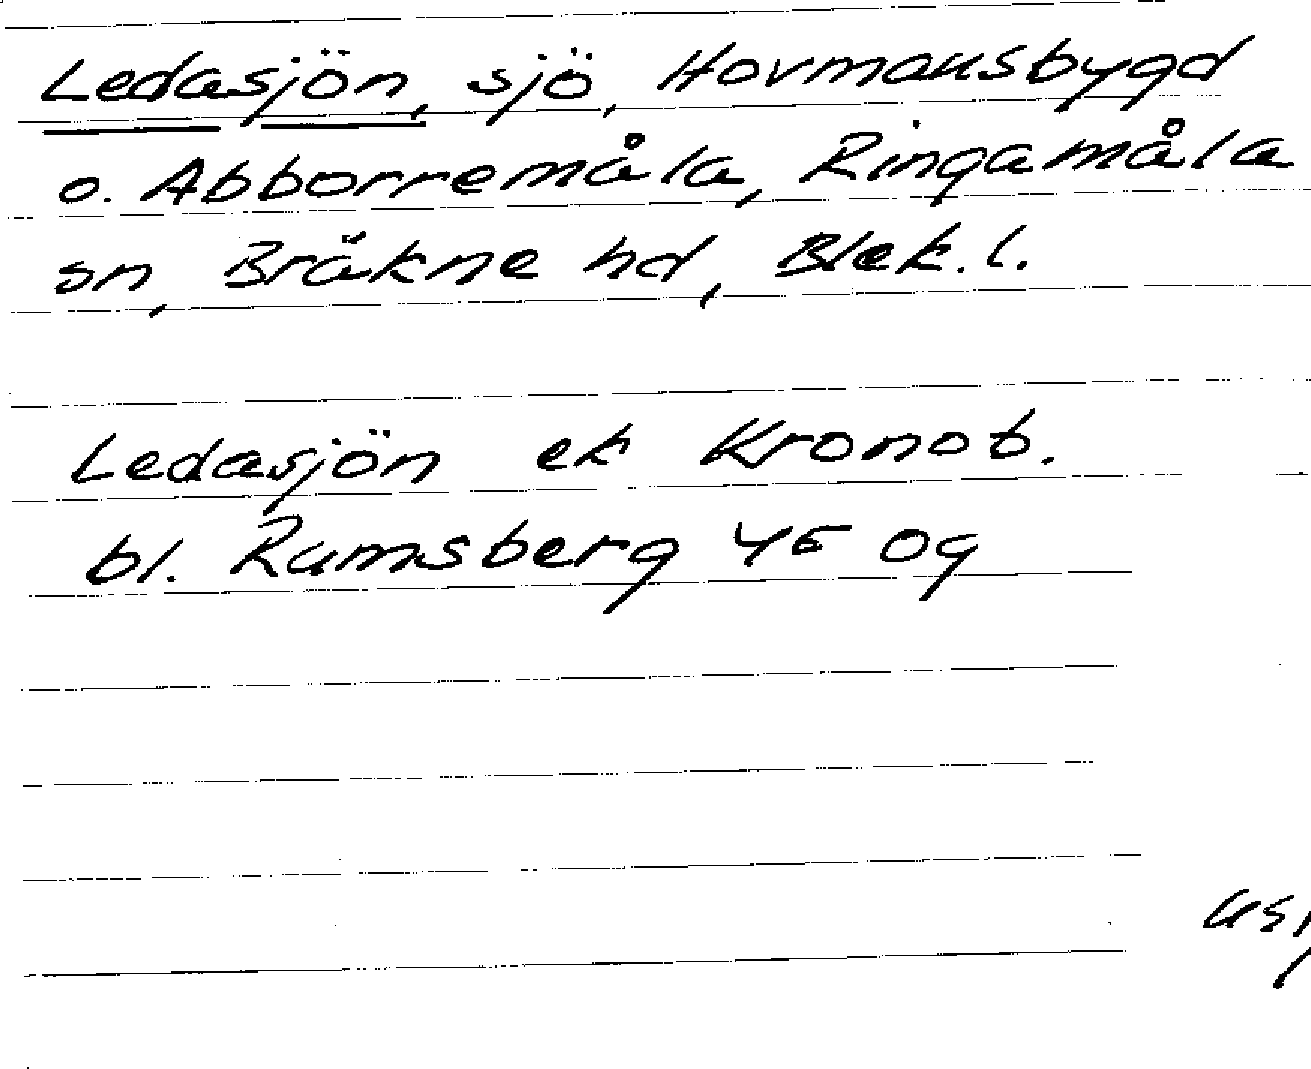 Ledasjön, sjö, Hovmansbygd
o. Abborremåla, Ringamåla
sn, Bräkne hd, Blek. l.
Ledasjön ek Kronob.
bl. Ramsberg 4F og